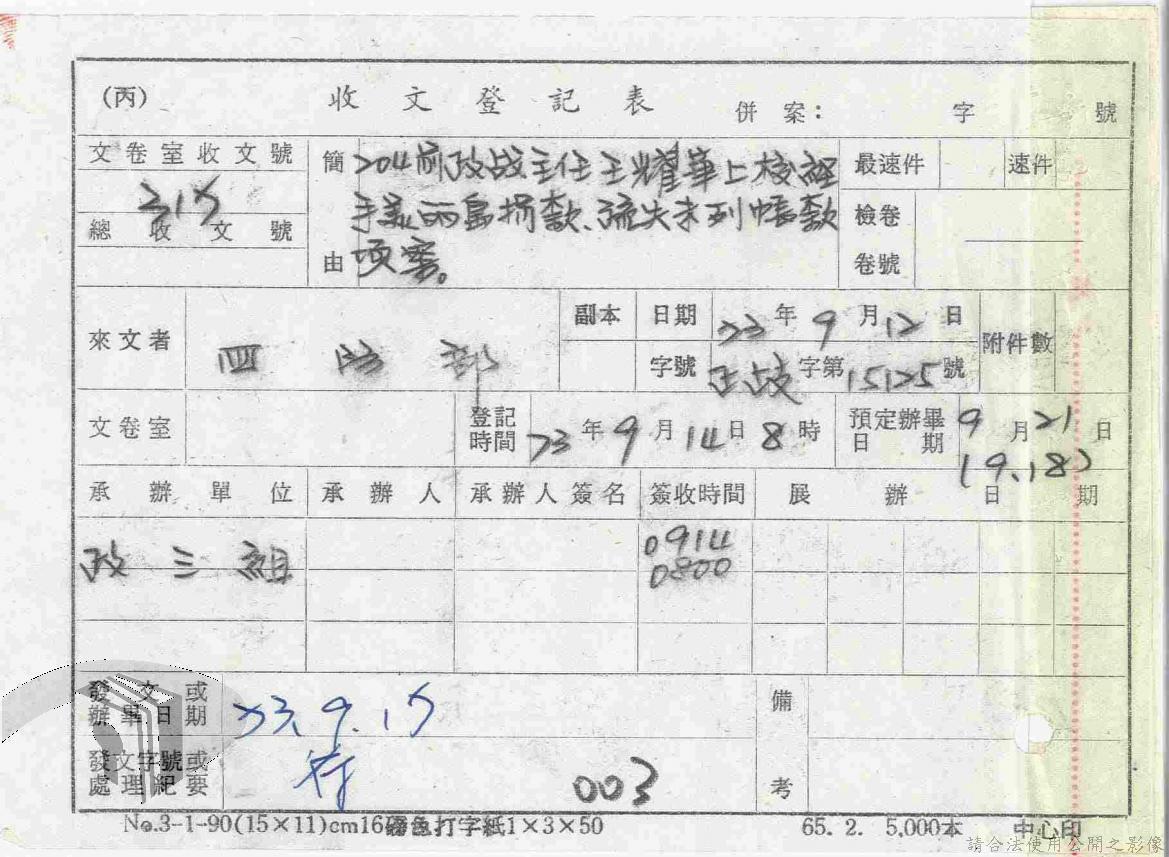 (丙) 收文登記表 併案: 字 號
文卷室收文號
315
總收文號
簡由
204前政战主任王耀華上校經
手美丽島捐款、流失未列帳款
項案。
最速件 速件
檢卷
卷號
來文者 四防部
副本 日期 73年9月12日
字號 字第15125號
附件數
文卷室
登記時間 73年9月14日8時
預定辦畢日期 9月21日
(9.18)
承辦單位 承辦人 承辦人簽名 簽收時間 展辦日期
政三組 0914
0800
發文或辦畢日期 73.9.15
發文字號或處理紀要 存
003
備考
No.3-1-90(15×11)cm16磅色打字紙1×3×50 65. 2. 5,000本 中心印
請合法使用公開之影像